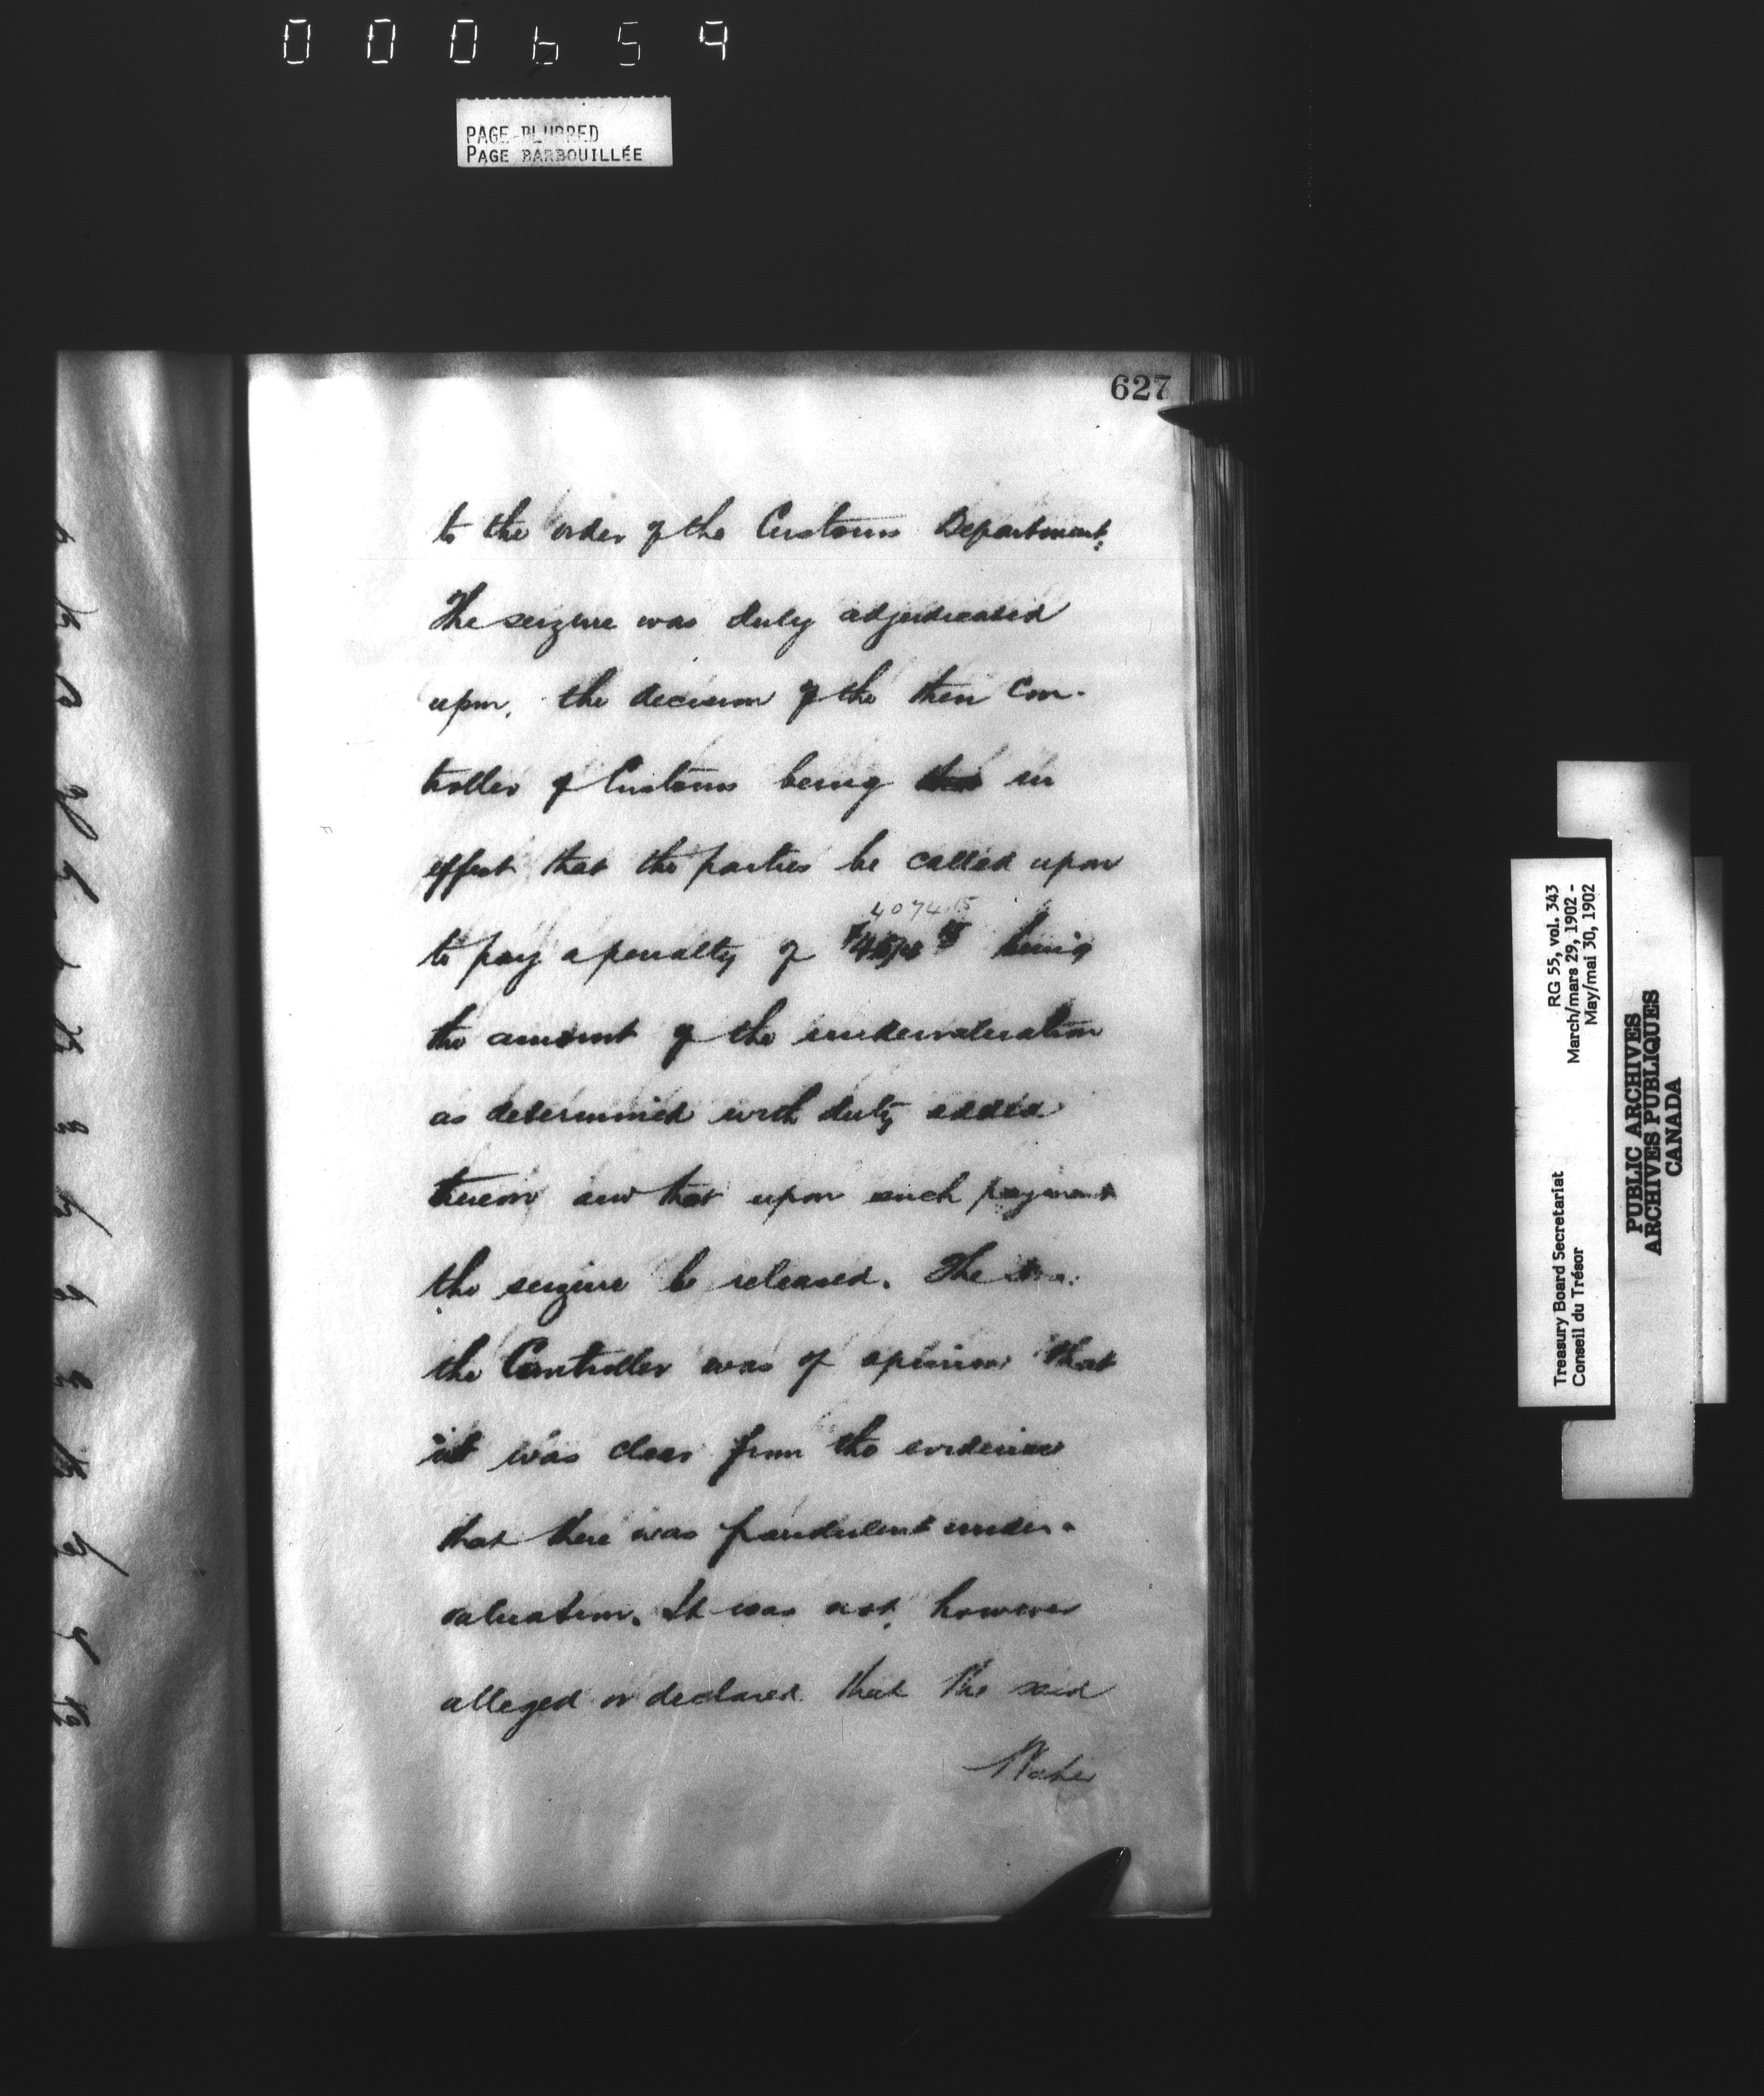 000659
PAGE BLURRED
PAGE BARBOUILLÉE
627
to the order of the Customs Department.
The seizure was duly adjudicated
upon, the decision of the then Con-
troller of Customs being in
effect that the parties be called upon
4074.15
to pay a penalty of being
the amount of the undervaluation
as determined with duty added
thereon and that upon such payment
the seizure be released. The
the Controller was of opinion that
it was clear from the evidence
that there was fraudulent under-
valuation. It was not, however
alleged or declared that the said
Treasury Board Secretariat RG 55, vol. 343
Conseil du Trésor March/mars 29, 1902 -
May/mai 30, 1902
PUBLIC ARCHIVES
ARCHIVES PUBLIQUES
CANADA